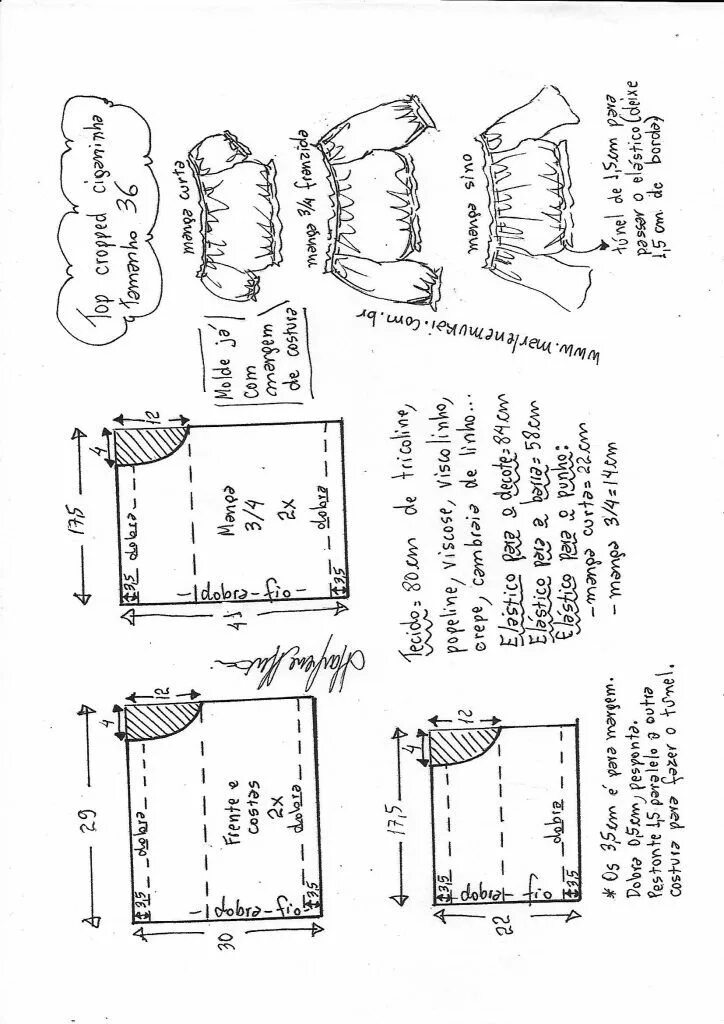 29
4
12
dobra
3,5
Frente e
costas
2x
dobra
fio
dobra
3,5
30
17,5
4
12
dobra
3,5
Manga
3/4
2x
dobra
fio
dobra
3,5
Top cropped ciganinha
Tamanho 36
Molde já
com
margem
de costura
manga curta
manga 3/4 franzida
manga sino
túnel de 1,5cm para
passar o elástico (deixe
1,5 cm de borda)
www.marlenemukai.com.br
17,5
4
12
3,5
dobra
fio
dobra
3,5
22
Tecido = 80cm de tricoline,
popeline, viscose, visco linho,
crepe, cambraia de linho...
Elástico para o decote = 84cm
Elástico para a barra = 58cm
Elástico para o punho:
- manga curta = 22cm
- manga 3/4 = 14cm
* Os 3,5cm é para margem.
Dobra 0,5cm, pesponta.
Pestonte 1,5 paralelo a outra
costura para fazer o túnel.